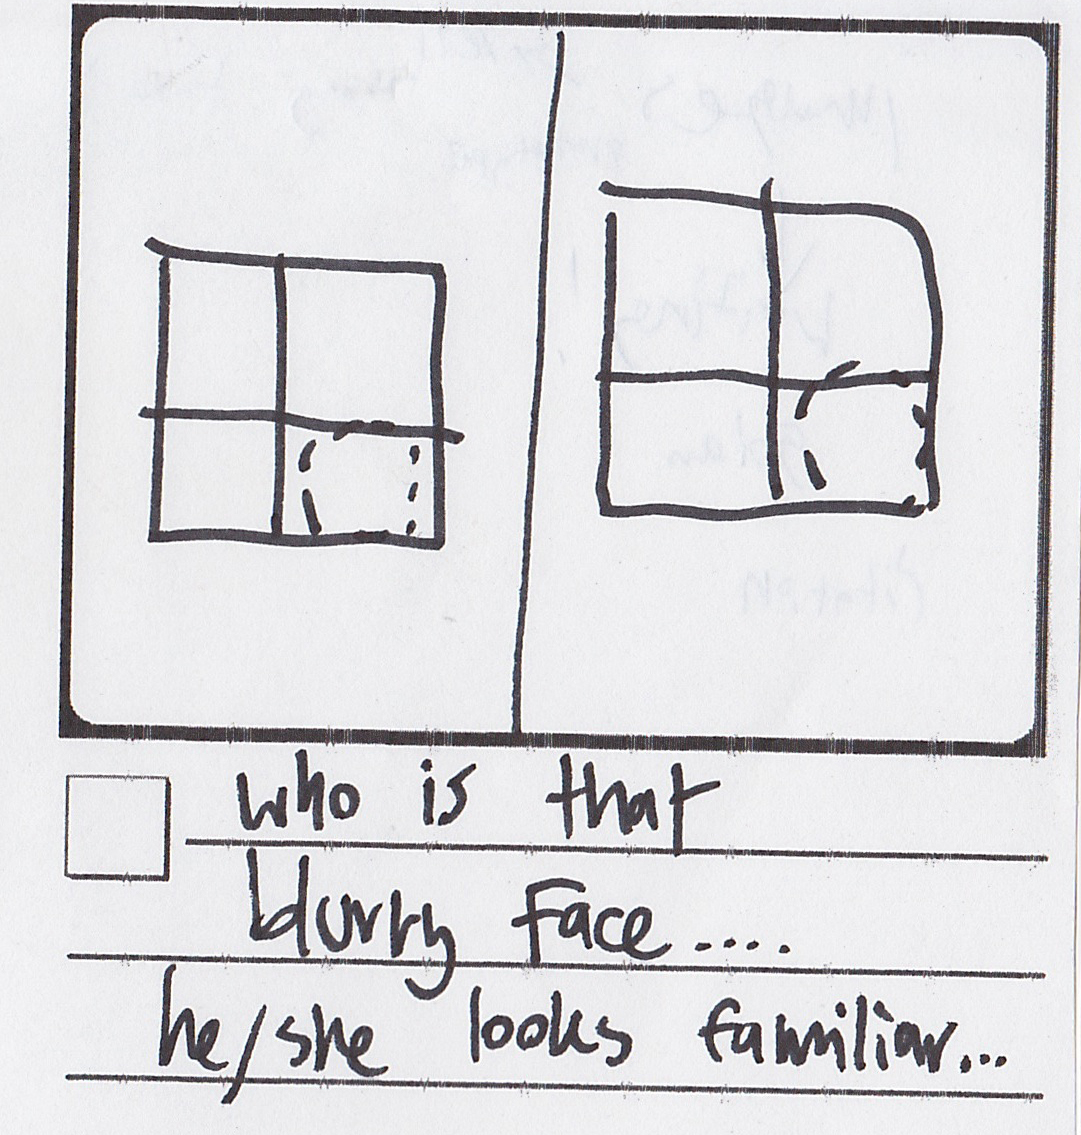 who is that
blurry face....
he/she looks familiar...